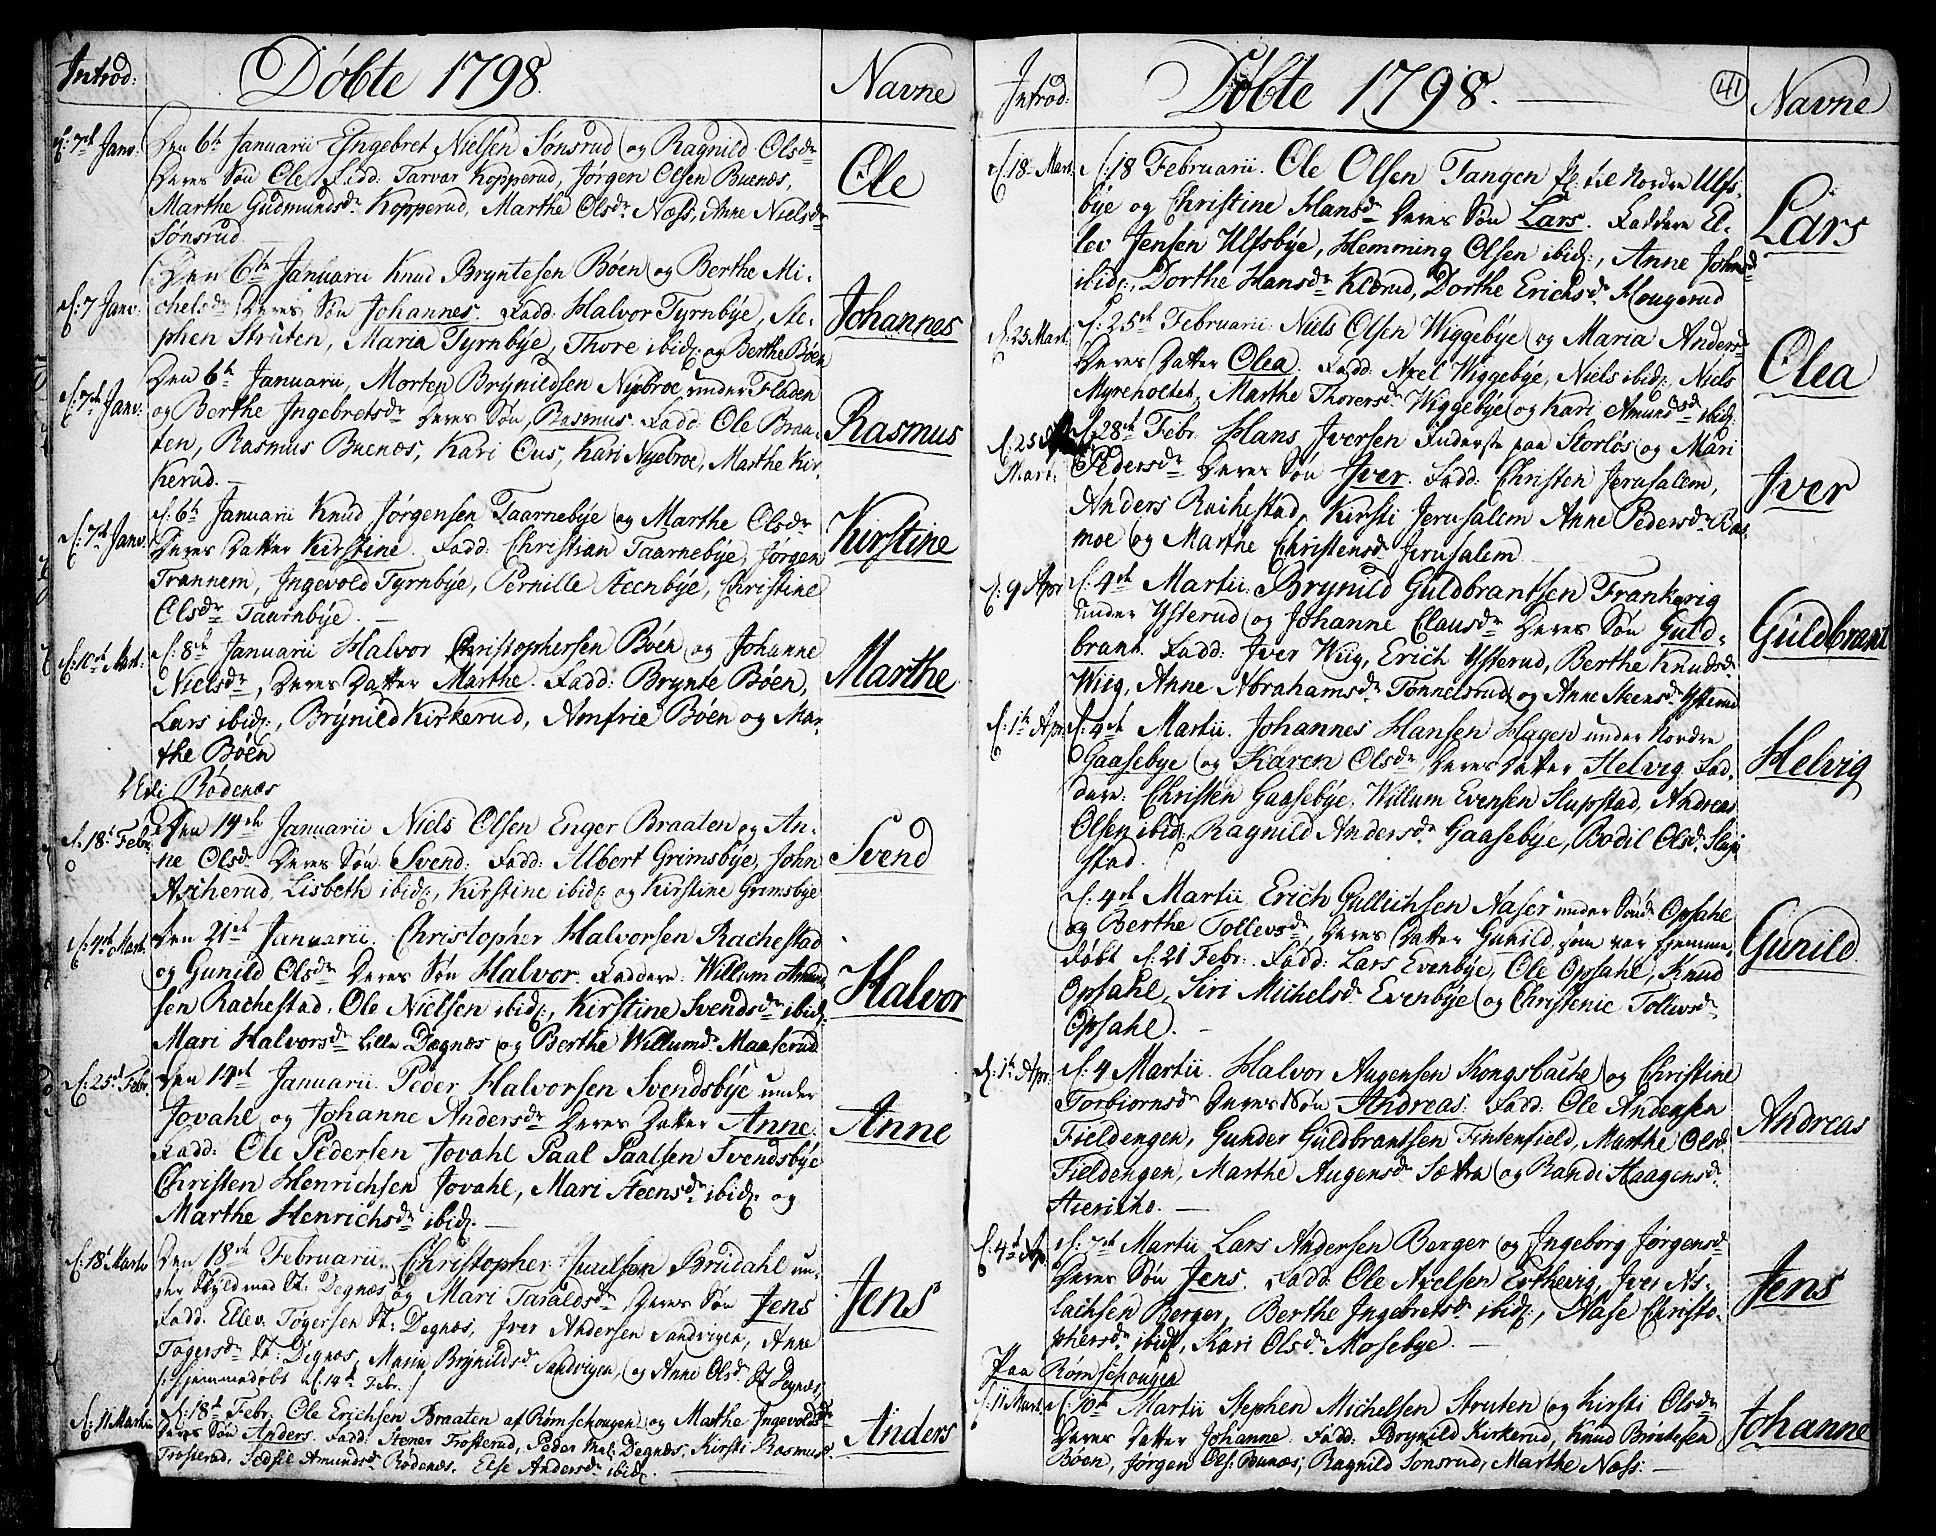 Introd:
Døbte 1798.
Navne
d: 7de Janv.
Den 6te Januarii Engebret Nielsen Sønsrud og Ragnild Olsdr
Deres Søn Ole. Fadd: Tarvar Kopperud, Jørgen Olsen Buenæs,
Marthe Gudmundsdr Kopperud, Marthe Olsdr Næss, Anne Nielsdr
Sønsrud
Ole
Den 6te Januarii Knud Bryntesen Bøen og Berthe Mi-
d: 7 Janv.
chelsdr Deres Søn Johannes. Fadd: Halvor Tyrnbye, Ste-
phen Struten, Maria Tyrnbye, Thore ibid: og Berthe Bøen
Johannes
d: 7de Janv:
Den 6te Januarii, Morten Brynildsen Nyebroe under Fladen
og Berthe Ingebretsdr Deres Søn, Rasmus. Fadd: Ole Braa-
ten, Rasmus Buenæs, Kari Ous, Kari Nyebroe, Marthe Kir-
kerud.
Rasmus
d: 7de Janv.
d: 6te Januarii Knud Jørgensen Taarnebye og Marthe Olsdr
Deres Datter Kirstine. Fadd: Christian Taarnebye, Jørgen
Trannem, Ingevold Tyrnbye, Pernille Steenbye, Christine
Olsdr Taarnbye.
Kirstine
d: 10de Mart:
d: 8de Januarii Halvor Christophersen Bøen og Johanne
Nielsdr, Deres Datter Marthe. Fadd: Brynte Bøen,
Lars ibid:, Brynild Kirkerud, Amfrie Bøen og Mar-
the Bøen
Marthe
Ved Rødenæs
d. 18de Febr.
Den 14de Januarii Niels Olsen Enger Braaten og An-
ne Olsdr Deres Søn Svend. Fadd: Albert Grimsbye, John
Asiherud, Lisbeth ibid:, Kirstine ibid: og Kirstine Grimsbye
Svend
d: 4de Mart.
Den 21de Januarii. Christopher Halvorsen Rachestad
og Gunild Olsdr Deres Søn Halvor. Faddere: Willum Amund-
sen Rachestad, Ole Nielsen ibid:, Kirstine Svendsdr ibid:
Mari Halvorsdr Lille Degnæs og Berthe Willumsdr Maaserud
Halvor
d: 25de Febr.
Den 14de Januarii. Peder Halvorsen Svendsbye under
Jovahl og Johanne Andersdr Deres Datter Anne.
Fadd: Ole Pedersen Jovahl Paal Paalsen Svendsbye
Christen Henrichsen Jovahl, Mari Steensdr ibid: og
Marthe Henrichsdr ibid:
Anne
d: 18de Martii
Den 18de Februarii. Christopher Juulsen Brudahl un-
der Skyld med St: Degnæs og Mari Taraldsdr Deres Søn Jens
Fadd: Ellev Tøgersen St: Degnæs, Iver Andersen Sandvigen, Anne
Tøgersdr St: Degnæs, Maria Brynildsdr Sandvigen, og Anne Olsdr St Degnæs
/: hjemmedøbt d: 14de Febr. :/
Jens
d: 11 Martii
d: 18de Febr. Ole Erichsen Braaten af Rømschougen og Marthe Ingevoldsdr
Deres Søn Anders. Fadd: Stener Trosterud, Peder Degnæs, Kirsti Rasmusdr
Trosterud, Sedsil Amundsdr Rødenæs. Else Andersdr ibid:
Anders
Introd:
Døbte 1798.
41
Navne
d. 18 Mart.
d: 18 Februarii. Ole Olsen Tangen Pl: til Nordre Ulfs-
bye og Christine Hansdr Deres Søn Lars. Faddere El-
lev Jensen Ulfsbye, Hemming Olsen ibid:, Anne Johnsdr
ibid:, Dorthe Hansdr Klerud, Dorthe Erichsdr Hougerud
Lars
d: 25 Mart.
d: 25de Februarii. Niels Olsen Wiggebye og Maria Andersdr
Deres Datter Olea. Fadd: Axel Wiggebye, Niels ibid:, Niels
Myreholtet, Marthe Thoresdr Wiggebye og Kari Amundsdr ibid:
Olea
d: 25
Mart:
d: 28de Febr. Hans Iversen Inderste paa Storløs og Mari
Pedersdr Deres Søn Iver. Fadd: Christen Jerusalem,
Anders Rachestad, Kirsti Jerusalem Anne Pedersdr Ras-
moe og Marthe Christensdr Jerusalem
Iver
d: 9 Apr
d: 4de Martii: Brynild Guldbrantsen Frankerig
under Ysterud og Johanne Clausdr Deres Søn Guld-
brant. Fadd: Iver Wiig, Erich Ysterud, Berthe Knudsdr
Wiig, Anne Abrahamsdr Tonnelsrud og Anne Steensdr Ysterud
Guldbrant
d: 1te Apr.
d: 4de Martii. Johannes Hansen Hagen under Nordre
Gaasebye og Karen Olsdr, Deres Datter Helvig Fad-
dere: Christen Gaasebye, Willum Evensen Slupstad, Andreas
Olsen ibid:, Ragnild Andersdr Gaasebye, Bodil Olsdr Slup
stad.
Helvig
d: 4de Martii Erich Gullichsen Naser under Søndr Opsahl
og Berthe Tollevsdr Deres Datter Gunild, som var hjemme-
døbt d: 21 Febr: Fadd: Lars Evenbye, Ole Opsahl, Knud
Opsahl, Siri Michelsdr Evenbye og Christenie Tollevsdr
Opsahl.
Gunild
d: 1te Apr.
d: 4 Martii. Halvor Augensen Kongsbache og Christine
Torbiornsdr Deres Søn Andreas. Fadd: Ole Andersen
Fieldengen, Gunder Guldbrantsen Tintenfield, Marthe Olsdr
Fieldengen, Marthe Augensdr Sætra og Randi Haagensdr
Hiericho.
Andreas
d: 4de Apr.
d: 7de Martii Lars Andersen Berger og Ingeborg Jørgensdr
Deres Søn Jens. Fadd: Ole Axelsen Erthevig, Iver As-
lachsen Berger, Berthe Ingebretsdr ibid:, Aase Christo-
phersdr ibid:, Kari Olsdr Mosebye.
Jens
Paa Rømschougen
d: 11 Mart.
d: 10de Martii Stephen Michelsen Struten og Kirsti Olsdr
Deres Datter Johanne. Fadd: Brynild Kirkerud, Knud Brøntesen
Bøen, Jørgen Ols: Bunæs, Ragnild Sonsrud, Marthe Næss.
Johanne